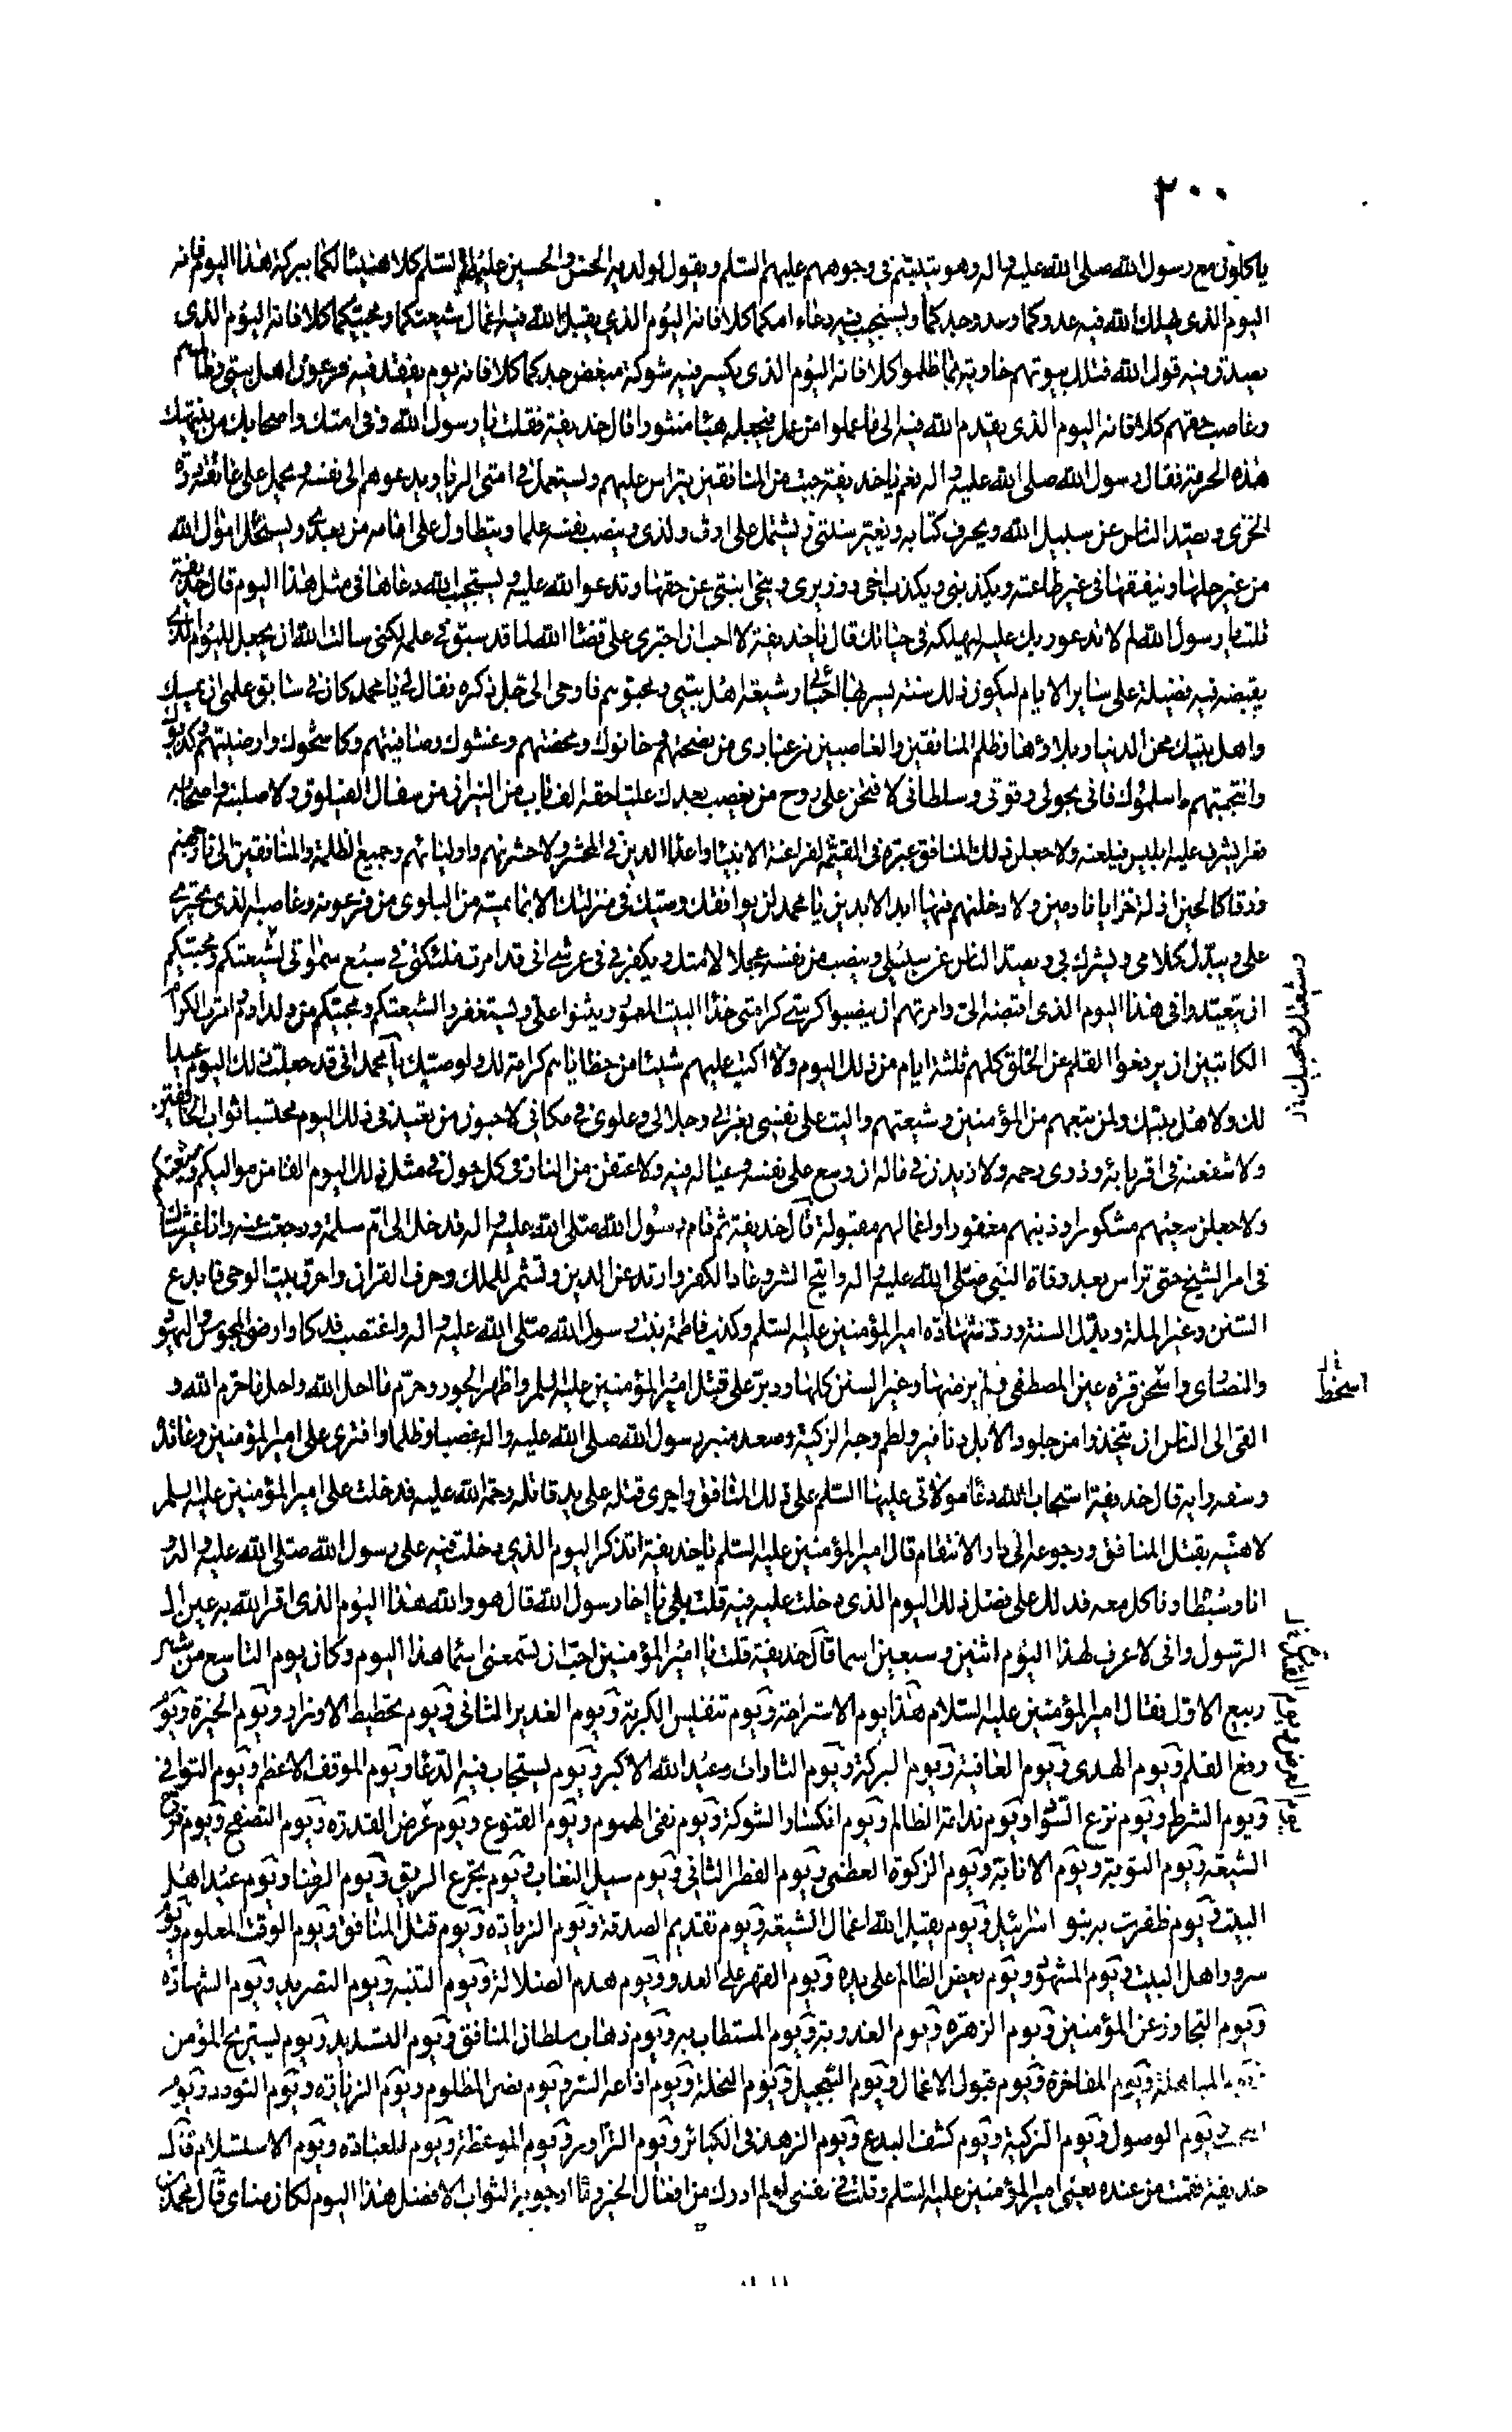 ٢٠٠
ياكلون مع رسول الله صلى الله عليه واله وهو يتبسّم في وجوههم عليهم السّلم ويقول لولديه الحسن والحسين عليهما السّلم كلا هنيئا لكما ببركة هذا اليوم فانه
اليوم الذى يهلك الله فيه عدوكما وعدو جدكما ويستجيب فيه دعاء امكما كلا فانه اليوم الذي يقبل الله فيه اعمال شيعتكما ومحبيكما كلا فانه اليوم الذى
يصدق فيه قول الله فتلك بيوتهم خاوية بما ظلموا كلا فانه اليوم الذى يكسر فيه شوكة مبغض جدكما كلا فانه يوم يفقد فيه فرعون اهل بيتى وظالمهم
وغاصب حقهم كلا فانه اليوم الذى يقدم الله فيه الى ما عملوا من عمل فيجعله هباء منثورا قال حذيفة فقلت يا رسول الله وفى امتك واصحابك من ينتهك
هذه الحرمة فقال رسول الله صلى الله عليه واله نعم يا حذيفة جبت من المنافقين يتراس عليهم ويستعمل فى امتى الرياء ويدعوهم الى نفسه ويحمل على عاتقه درة
الخزى ويصد الناس عن سبيل الله ويحرف كتابه ويغير سنتى ويشتمل على ارث ولدى وينصب نفسه علما ويتطاول على امامه من بعدى ويستحل اموال الله
من غير حلها وينفقها فى غير طاعته ويكذبنى ويكذب اخى ووزيرى وينحى ابنتى عن حقها وتدعوا الله عليه ويستجيب الله دعاها فى مثل هذا اليوم قال حذيفة
قلت يا رسول الله لم لا تدعو ربك عليه ليهلكه فى حياتك قال يا حذيفة لا احب ان اجترى على قضاء الله لما قد سبق فى علمه لكنى سالت الله ان يجعل لليوم الذى
يقبضه فيه فضيلة على ساير الايام ليكون ذلك سنة يستن بها احبائى وشيعة اهل بيتى ومحبوهم فاوحى الى جل ذكره فقال لى يا محمد كان فى سابق علمى ان تمسك
واهل بيتك محن الدنيا وبلاؤها وظلم المنافقين والغاصبين من عبادى من نصحتهم وخانوك ومحضتهم وغشوك وصافيتهم وكاشحوك وارضيتهم وكذبوك
وانتجبتهم واسلموك فانى بحولى وقوتى وسلطانى لافتحن على روح من يغصب بعدك عليا حقه الف باب من النيران من سفال الفيلوق ولاصلينه واصحابه
قعرا يشرف عليه ابليس فيلعنه ولاجعلن ذلك المنافق عبرة فى القيمة لفراعنة الانبياء واعداء الدين فى المحشر ولاحشرنهم واوليائهم وجميع الظلمة والمنافقين الى نار جهنم
زرقا كالحين اذلة خزايا نادمين ولادخلنهم فيها ابد الابدين يا محمد لن يوافقك وصيك فى منزلتك الا بما يمسه من البلوى من فرعونه وغاصبه الذى يجترى
على ويبدل كلامى ويشرك بى ويصد الناس عن سبيلى وينصب من نفسه عجلا لامتك ويكفر بى فى عرشى انى قد امرت ملئكتى فى سبع سمواتى لشيعتكم ومحبيكم
ان يتعيدوا فى هذا اليوم الذى اقبضه الى وامرتهم ان ينصبوا كرسى كرامتى حذاء البيت المعمور ويثنوا على ويستغفروا لشيعتكم ومحبيكم من ولد ادم وامرت الكرام
الكاتبين ان يرفعوا القلم عن الخلق كلهم ثلثة ايام من ذلك اليوم ولا اكتب عليهم شيئا من خطاياهم كرامة لك ولوصيك يا محمد انى قد جعلت ذلك اليوم عيدا
لك ولاهل بيتك ولمن تبعهم من المؤمنين وشيعتهم واليت على نفسى بعزتى وجلالى وعلوى فى مكانى لاحبون من تعيد فى ذلك اليوم محتسبا ثواب الخافقين
ولاشفعنه فى اقربائه وذوى رحمه ولازيدن فى ماله ان وسع على نفسه وعياله فيه ولاعتقن من النار فى كل حول فى مثل ذلك اليوم الفا من مواليكم وشيعتكم
ولاجعلن سعيهم مشكورا وذنبهم مغفورا واعمالهم مقبولة قال حذيفة ثم قام رسول الله صلى الله عليه واله فدخل الى ام سلمة ورجعت عنه وانا غير شاك
فى امر الشيخ حتى تراس بعد وفاة النبى صلى الله عليه واله واتيح الشر وعاد الكفر وارتد عن الدين وتشمر للملك وحرف القران واحرق بيت الوحى وابدع
السنن وغير الملة وبدل السنة ورد شهادة امير المؤمنين عليه السلم وكذب فاطمة بنت رسول الله صلى الله عليه واله واغتصب فدكا وارضى المجوس واليهود
والنصارى واسخن قرة عين المصطفى ولم يرضها وغير السنن كلها ودبر على قتل امير المؤمنين عليه السلم واظهر الجور وحرم ما احل الله واحل ما حرم الله و
القى الى الناس ان يتخذوا من جلود الابل دنانير ولطم وجه الزكية وصعد منبر رسول الله صلى الله عليه واله غصبا وظلما وافترى على امير المؤمنين وعانده
وسفه رايه قال حذيفة استجاب الله دعاء مولاتى عليها السلم على ذلك المنافق واجرى قتله على يد قاتله رحمة الله عليه فدخلت على امير المؤمنين عليه السلم
لاهنئه بقتل المنافق ورجوعه الى دار الانتقام قال امير المؤمنين عليه السلم يا حذيفة اتذكر اليوم الذى دخلت فيه على رسول الله صلى الله عليه واله و
انا وسبطاه ناكل معه فدلك على فضل ذلك اليوم الذى دخلت عليه فيه قلت بلى يا اخا رسول الله قال هو والله هذا اليوم الذى اقر الله به عين ال
الرسول وانى لاعرف لهذا اليوم اثنين وسبعين اسما قال حذيفة قلت يا امير المؤمنين احب ان تسمعنى اسماء هذا اليوم وكان يوم التاسع من شهر
ربيع الاول فقال امير المؤمنين عليه السلام هذا يوم الاستراحة ويوم تنفيس الكربة ويوم الغدير الثانى ويوم تحطيط الاوزار ويوم الخيرة ويوم
رفع القلم ويوم الهدى ويوم العافية ويوم البركة ويوم الثارات وعيد الله الاكبر ويوم يستجاب فيه الدعا ويوم الموقف الاعظم ويوم التوافى
ويوم الشرط ويوم نزع السواد ويوم ندامة الظالم ويوم انكسار الشوكة ويوم نفى الهموم ويوم القنوع ويوم عرض القدرة ويوم التصفح ويوم فرح
الشيعة ويوم التوبة ويوم الانابة ويوم الزكوة العظمى ويوم الفطر الثانى ويوم سيل النغاب ويوم تجرع الريق ويوم الرضا ويوم عيد اهل
البيت ويوم ظفرت به بنو اسرائيل ويوم يقبل الله اعمال الشيعة ويوم تقديم الصدقة ويوم الزيادة ويوم قتل المنافق ويوم الوقت المعلوم ويوم
سرور اهل البيت ويوم الشهود ويوم يعض الظالم على يديه ويوم القهر على العدو ويوم هدم الضلالة ويوم التنبه ويوم التصريد ويوم الشهادة
ويوم التجاوز عن المؤمنين ويوم الزهرة ويوم العذوبة ويوم المستطاب به ويوم ذهاب سلطان المنافق ويوم التسديد ويوم يستريح المؤمن
ويوم المباهلة ويوم المفاخرة ويوم قبول الاعمال ويوم التبجيل ويوم النحلة ويوم اذاعة السر ويوم نصر المظلوم ويوم الزيارة ويوم التودد ويوم
ويوم الوصول ويوم التزكية ويوم كشف البدع ويوم الزهد فى الكبائر ويوم التزاور ويوم الموعظة ويوم العبادة ويوم الاستسلام قال
حذيفة فقمت من عنده يعنى امير المؤمنين عليه السلم وقلت فى نفسى لو لم ادرك من افعال الخير وما ارجو به الثواب الا فضل هذا اليوم لكان مناى قال محمد بن
اسخط